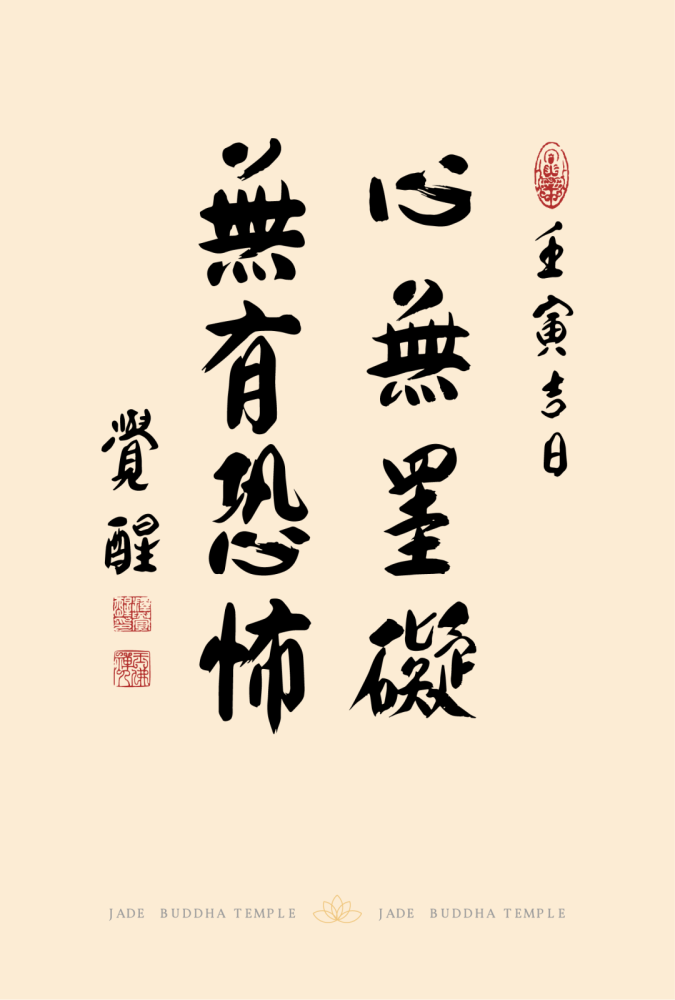 壬寅吉日
心無罣礙
無有恐怖
覺醒
JADE BUDDHA TEMPLE JADE BUDDHA TEMPLE